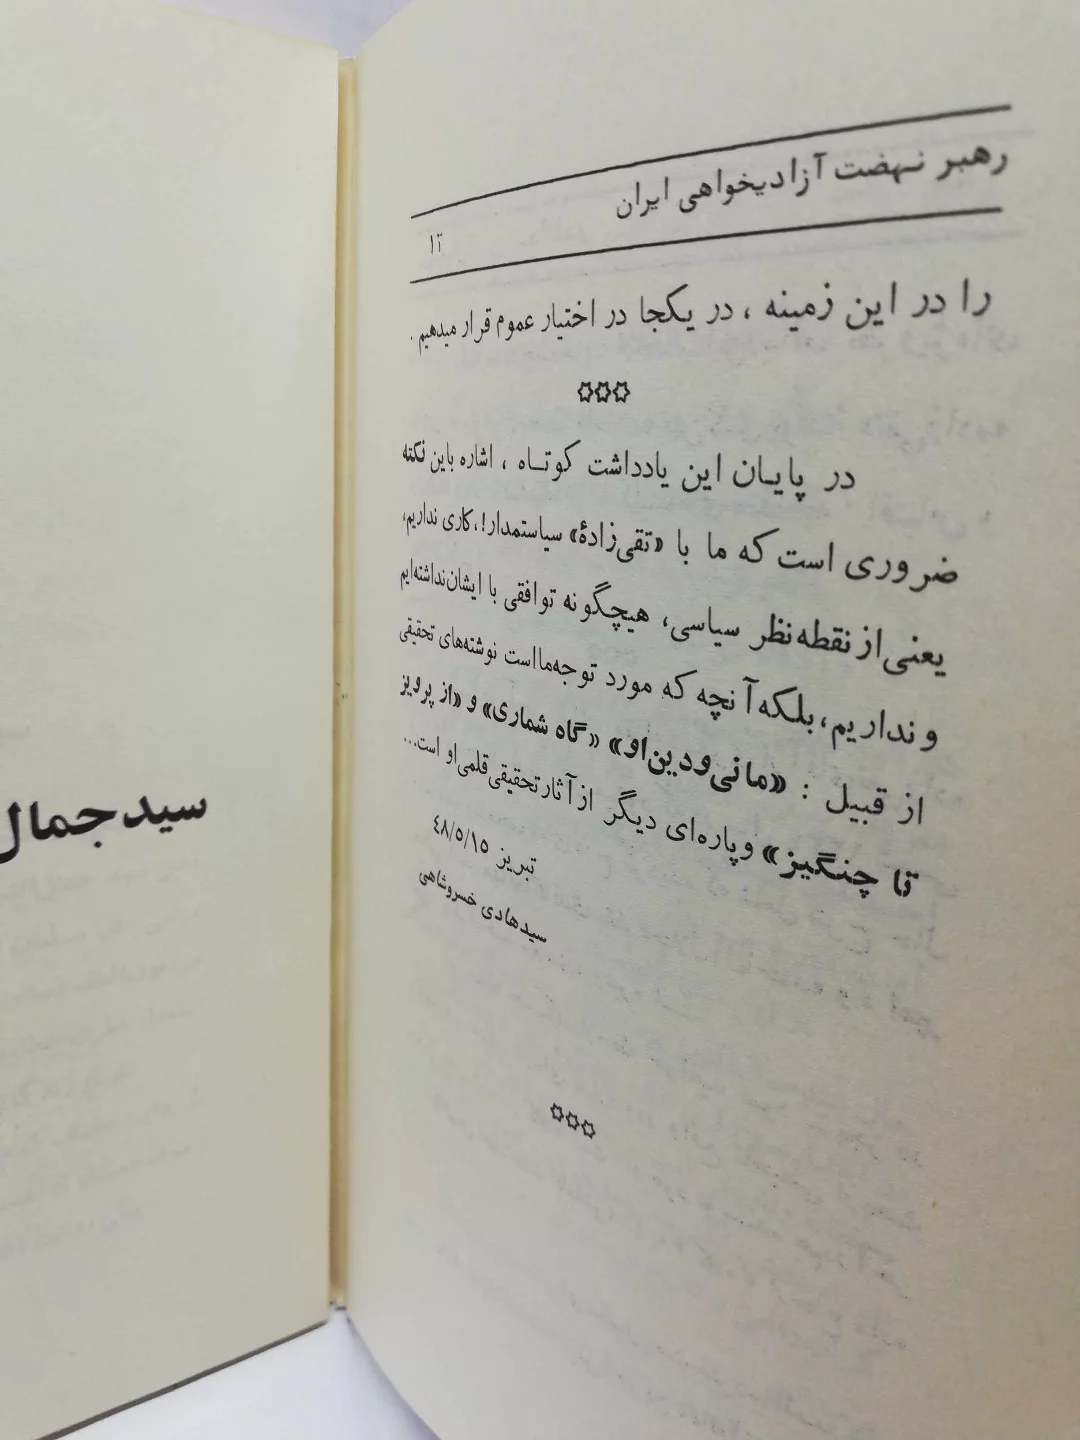 رهبر نهضت آزادیخواهی ایران
را در این زمینه ، در یکجا در اختیار عموم قرار میدهیم .
در پایان این یادداشت کوتاه ، اشاره باین نکته
ضروری است که ما با «تقی‌زادهٔ» سیاستمدار!، کاری نداریم،
یعنی از نقطه‌نظر سیاسی، هیچگونه توافقی با ایشان نداشته‌ایم
و نداریم، بلکه آنچه که مورد توجه ما است نوشته‌های تحقیقی
از قبیل : «مانی و دین او» «گاه شماری» و «از پرویز
تا چنگیز» و پاره‌ای دیگر از آثار تحقیقی قلمی او است...
تبریز ٤٨/٥/١٥
سیدهادی خسروشاهی
سید جمال